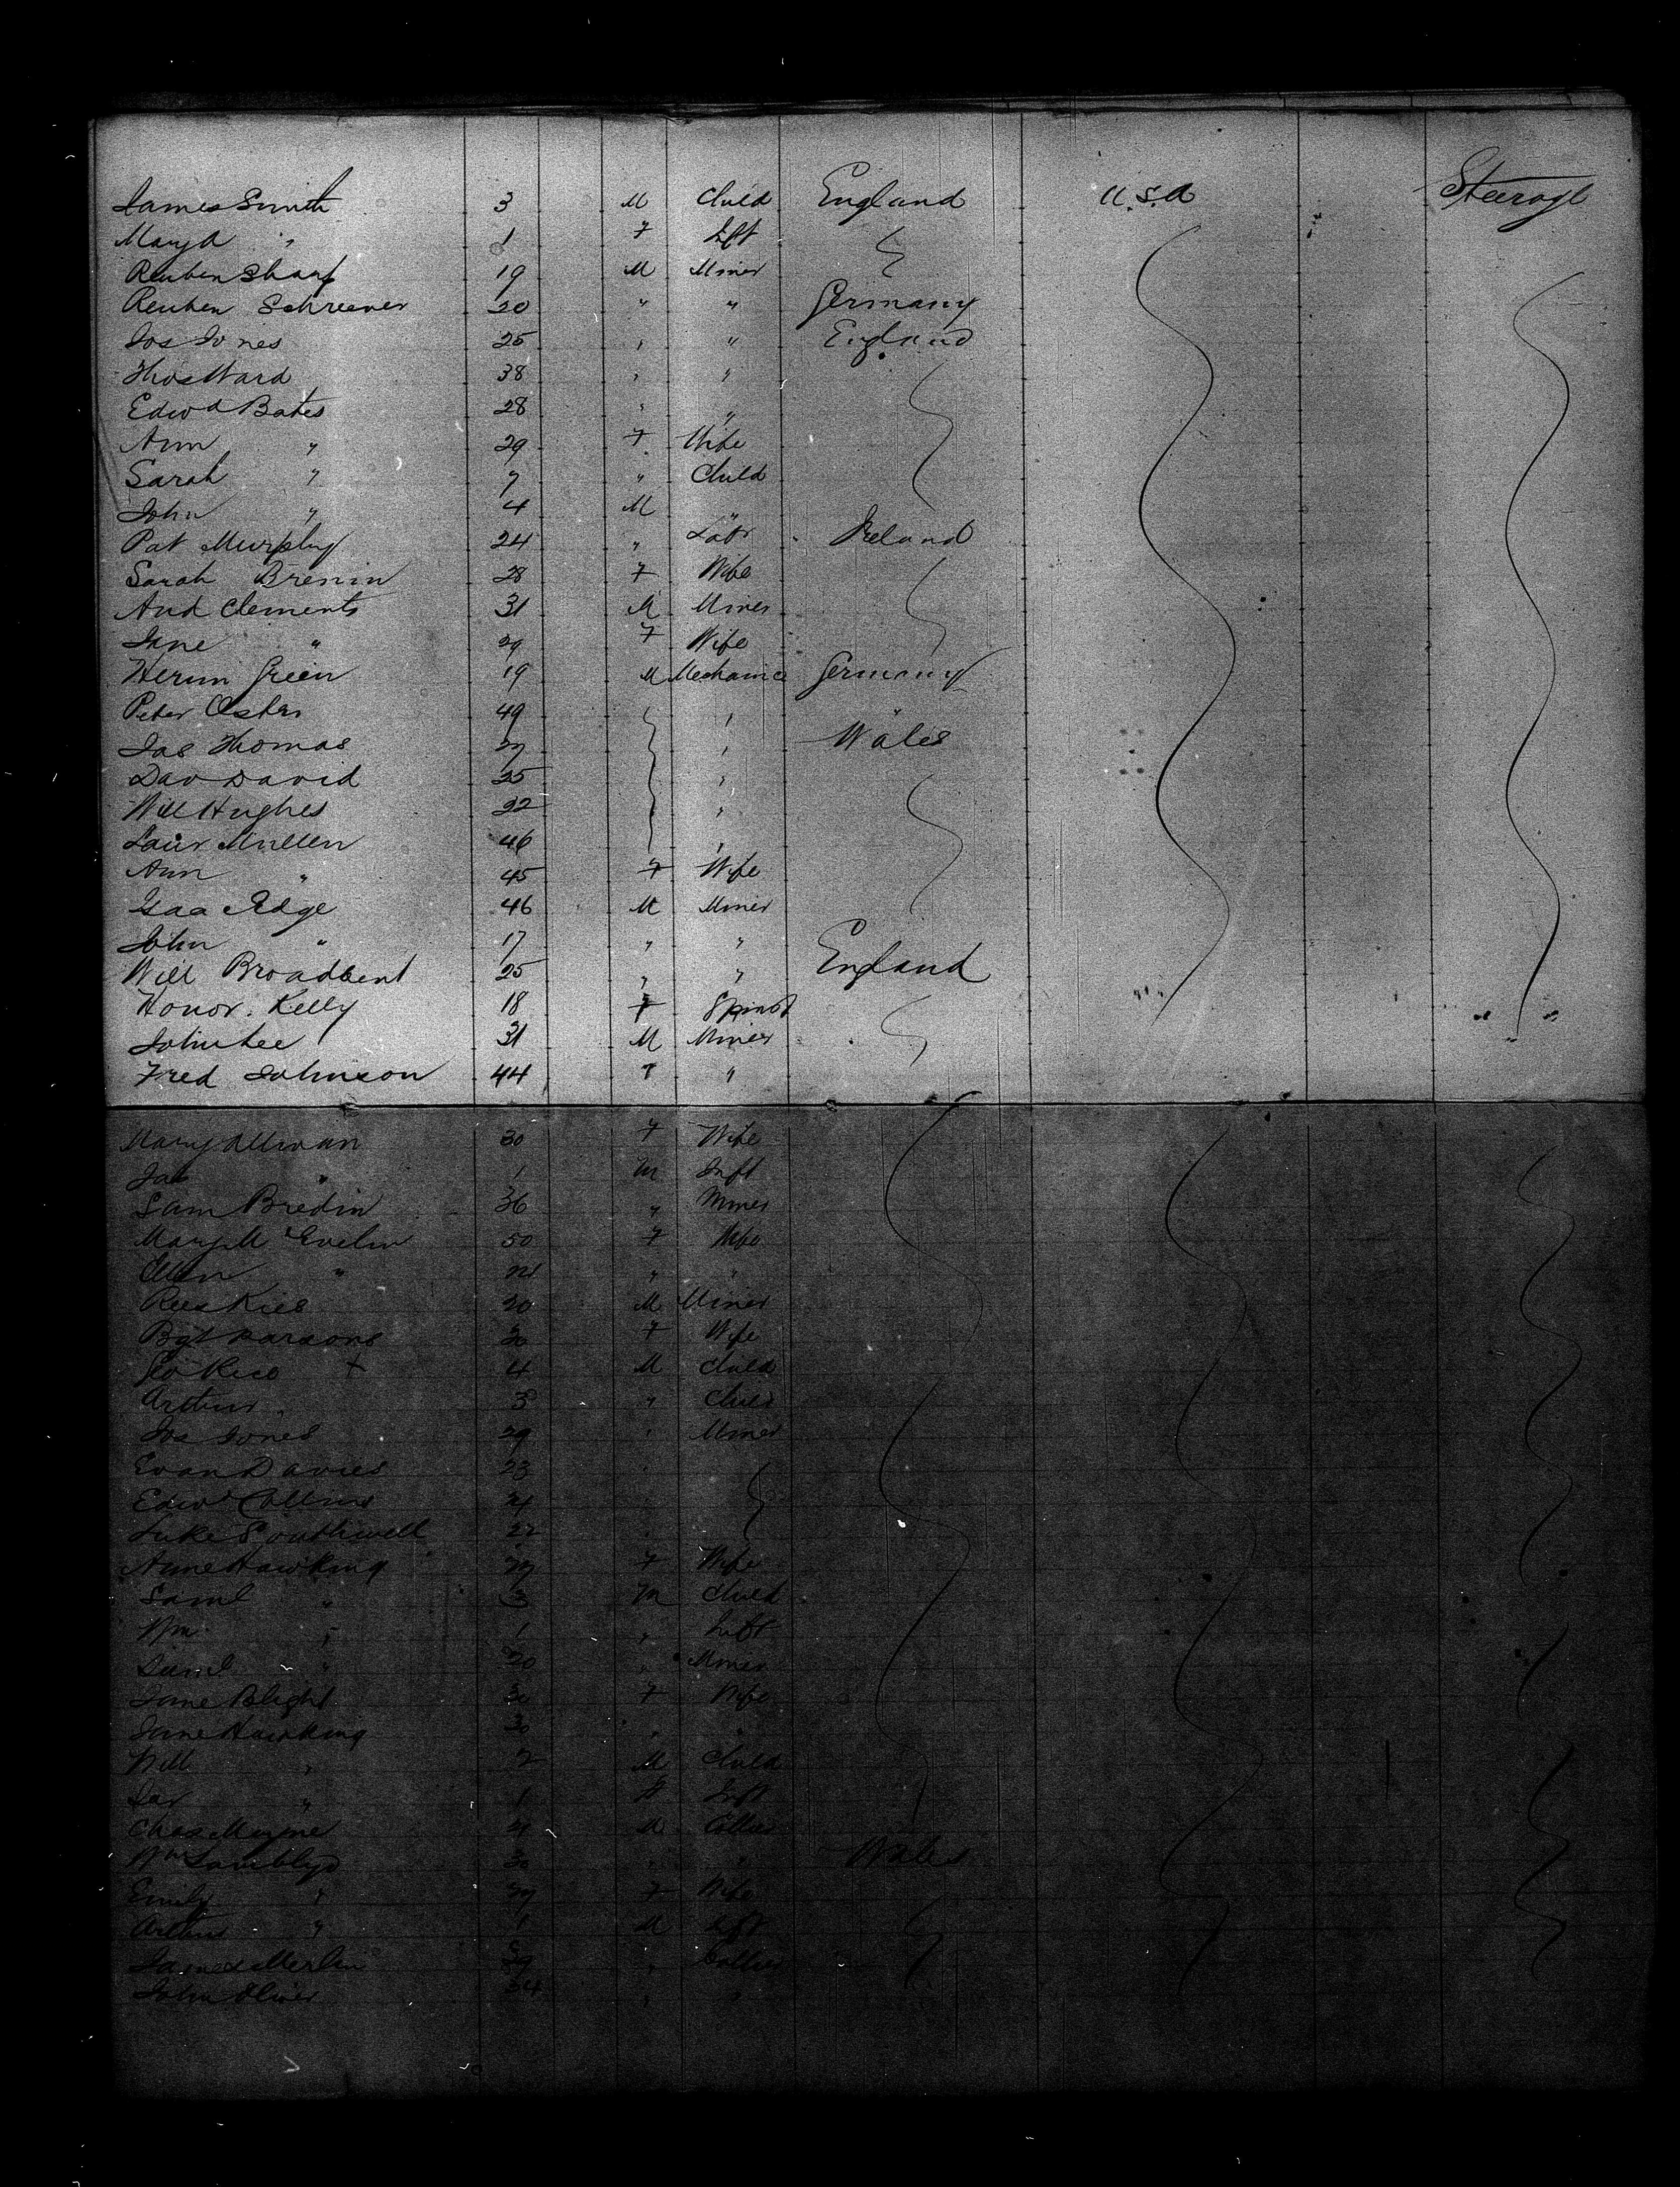 James Smith 3 M Child England U.S.A Steerage
Mary A " 1 F Inft
Reuben Sharp 19 M Miner
Reuben Schreener 20 " " Germany
Jos Jones 25 " " England
Thos Ward 38 " "
Edwd Bates 28 " "
Ann " 29 F Wife
Sarah " 7 " Child
John " 4 M "
Pat Murphy 24 " Labr Ireland
Sarah Brenin 28 F Wife
And Clements 31 M Miner
Jane " 29 F Wife
Herm Green 19 M Mechanic Germany
Peter Oster 49 " "
Jas Thomas 27 " Wales
Dav David 25 "
Will Hughes 22 "
Laur Mullen 46 "
Ann " 45 F Wife
Isaa Edge 46 M Miner
John " 17 " "
Will Broadbent 25 " " England
Honor. Kelly 18 F Spinst
John Lee 31 M Miner
Fred Johnson 44 " "
Mary Allman 30 F Wife
Jas " 1 M Inft
Sam Bredin 36 " Miner
Mary M Evelin 50 F Wife
Ellen " 21 " "
Rees Rees 20 M Miner
Bgt Parsons 30 F Wife
Geo Rees + 4 M Child
Arthur 3 " Child
Jos Jones 29 " Miner
Evan Davies 23 "
Edwd Collins 21 "
Luke Southwell 22 "
Anne Hawking 27 F Wife
Saml " 3 M Child
Wm " 1 " Inft
Saml " 30 " Miner
Jane Blight 30 F Wife
Jane Hawking 30 " "
Will " 7 M Child
Jas " 1 Inft
Chas Mayne 21 M Collier
Wm 30 " " Wales
Emily " 27 F Wife
Arthur " 1 M Inft
James Merlin 39 " Collier
John Oliver 34 " "